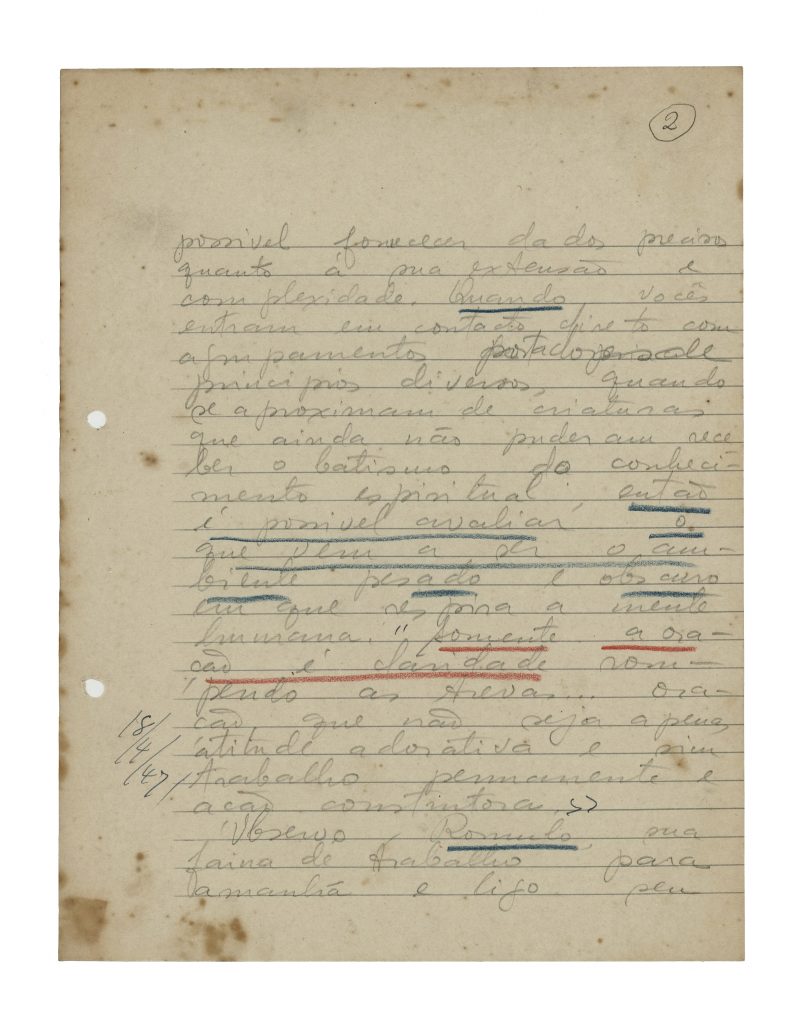 2
possivel fornecer dados precisos
quanto á sua extensão e
complexidade. Quando, vocês
entram em contacto direto com
agrupamentos portadores de
principios diversos, quando
se aproximam de criaturas
que ainda não puderam rece
ber o batismo do conheci-
mento espiritual, então
é possivel avaliar o
que vem a ser o am-
biente pesado e obscuro
em que respira a mente
humana. " Somente a ora-
ção é claridade rom-
pendo as trevas... Ora-
ção, que não seja apenas
atitude adorativa e sim
18/
/4/
/47/
trabalho permanente e
ação construtora. >>
Observo Romulo, sua
faina de trabalho para
amanhã e ligo seu